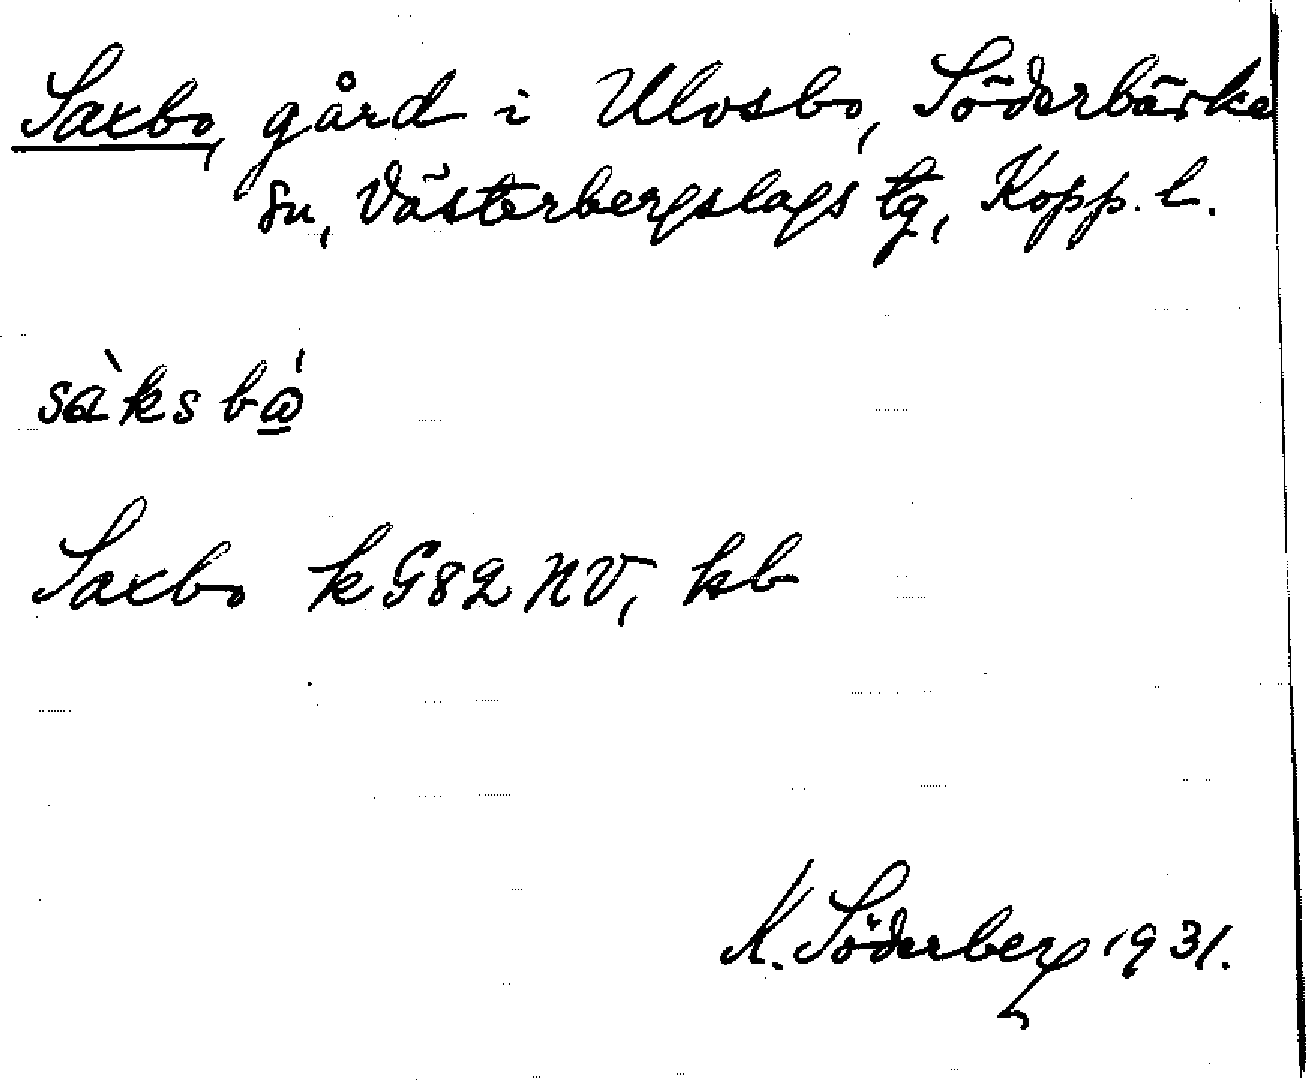 Saxbo, gård i Ulvsbo, Söderbärke
sn, Västerbergslags tg, Kopp. l.
sàksbǻ
Saxbo k G82 NV, kb
K. Söderberg 1931.